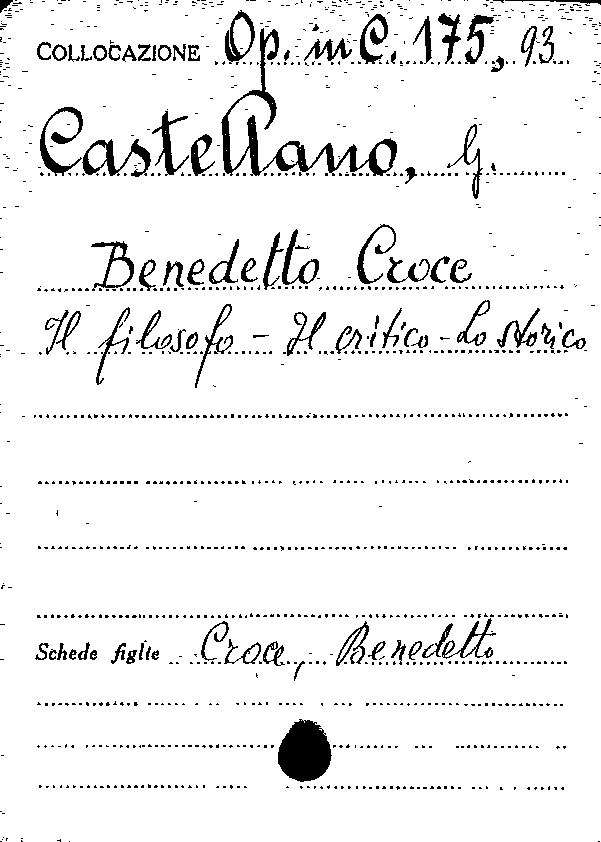 COLLOCAZIONE Op. in C. 175, 93
Castellano, G.
Benedetto Croce
Il filosofo - Il critico - Lo storico
Schede figlie Croce, Benedetto